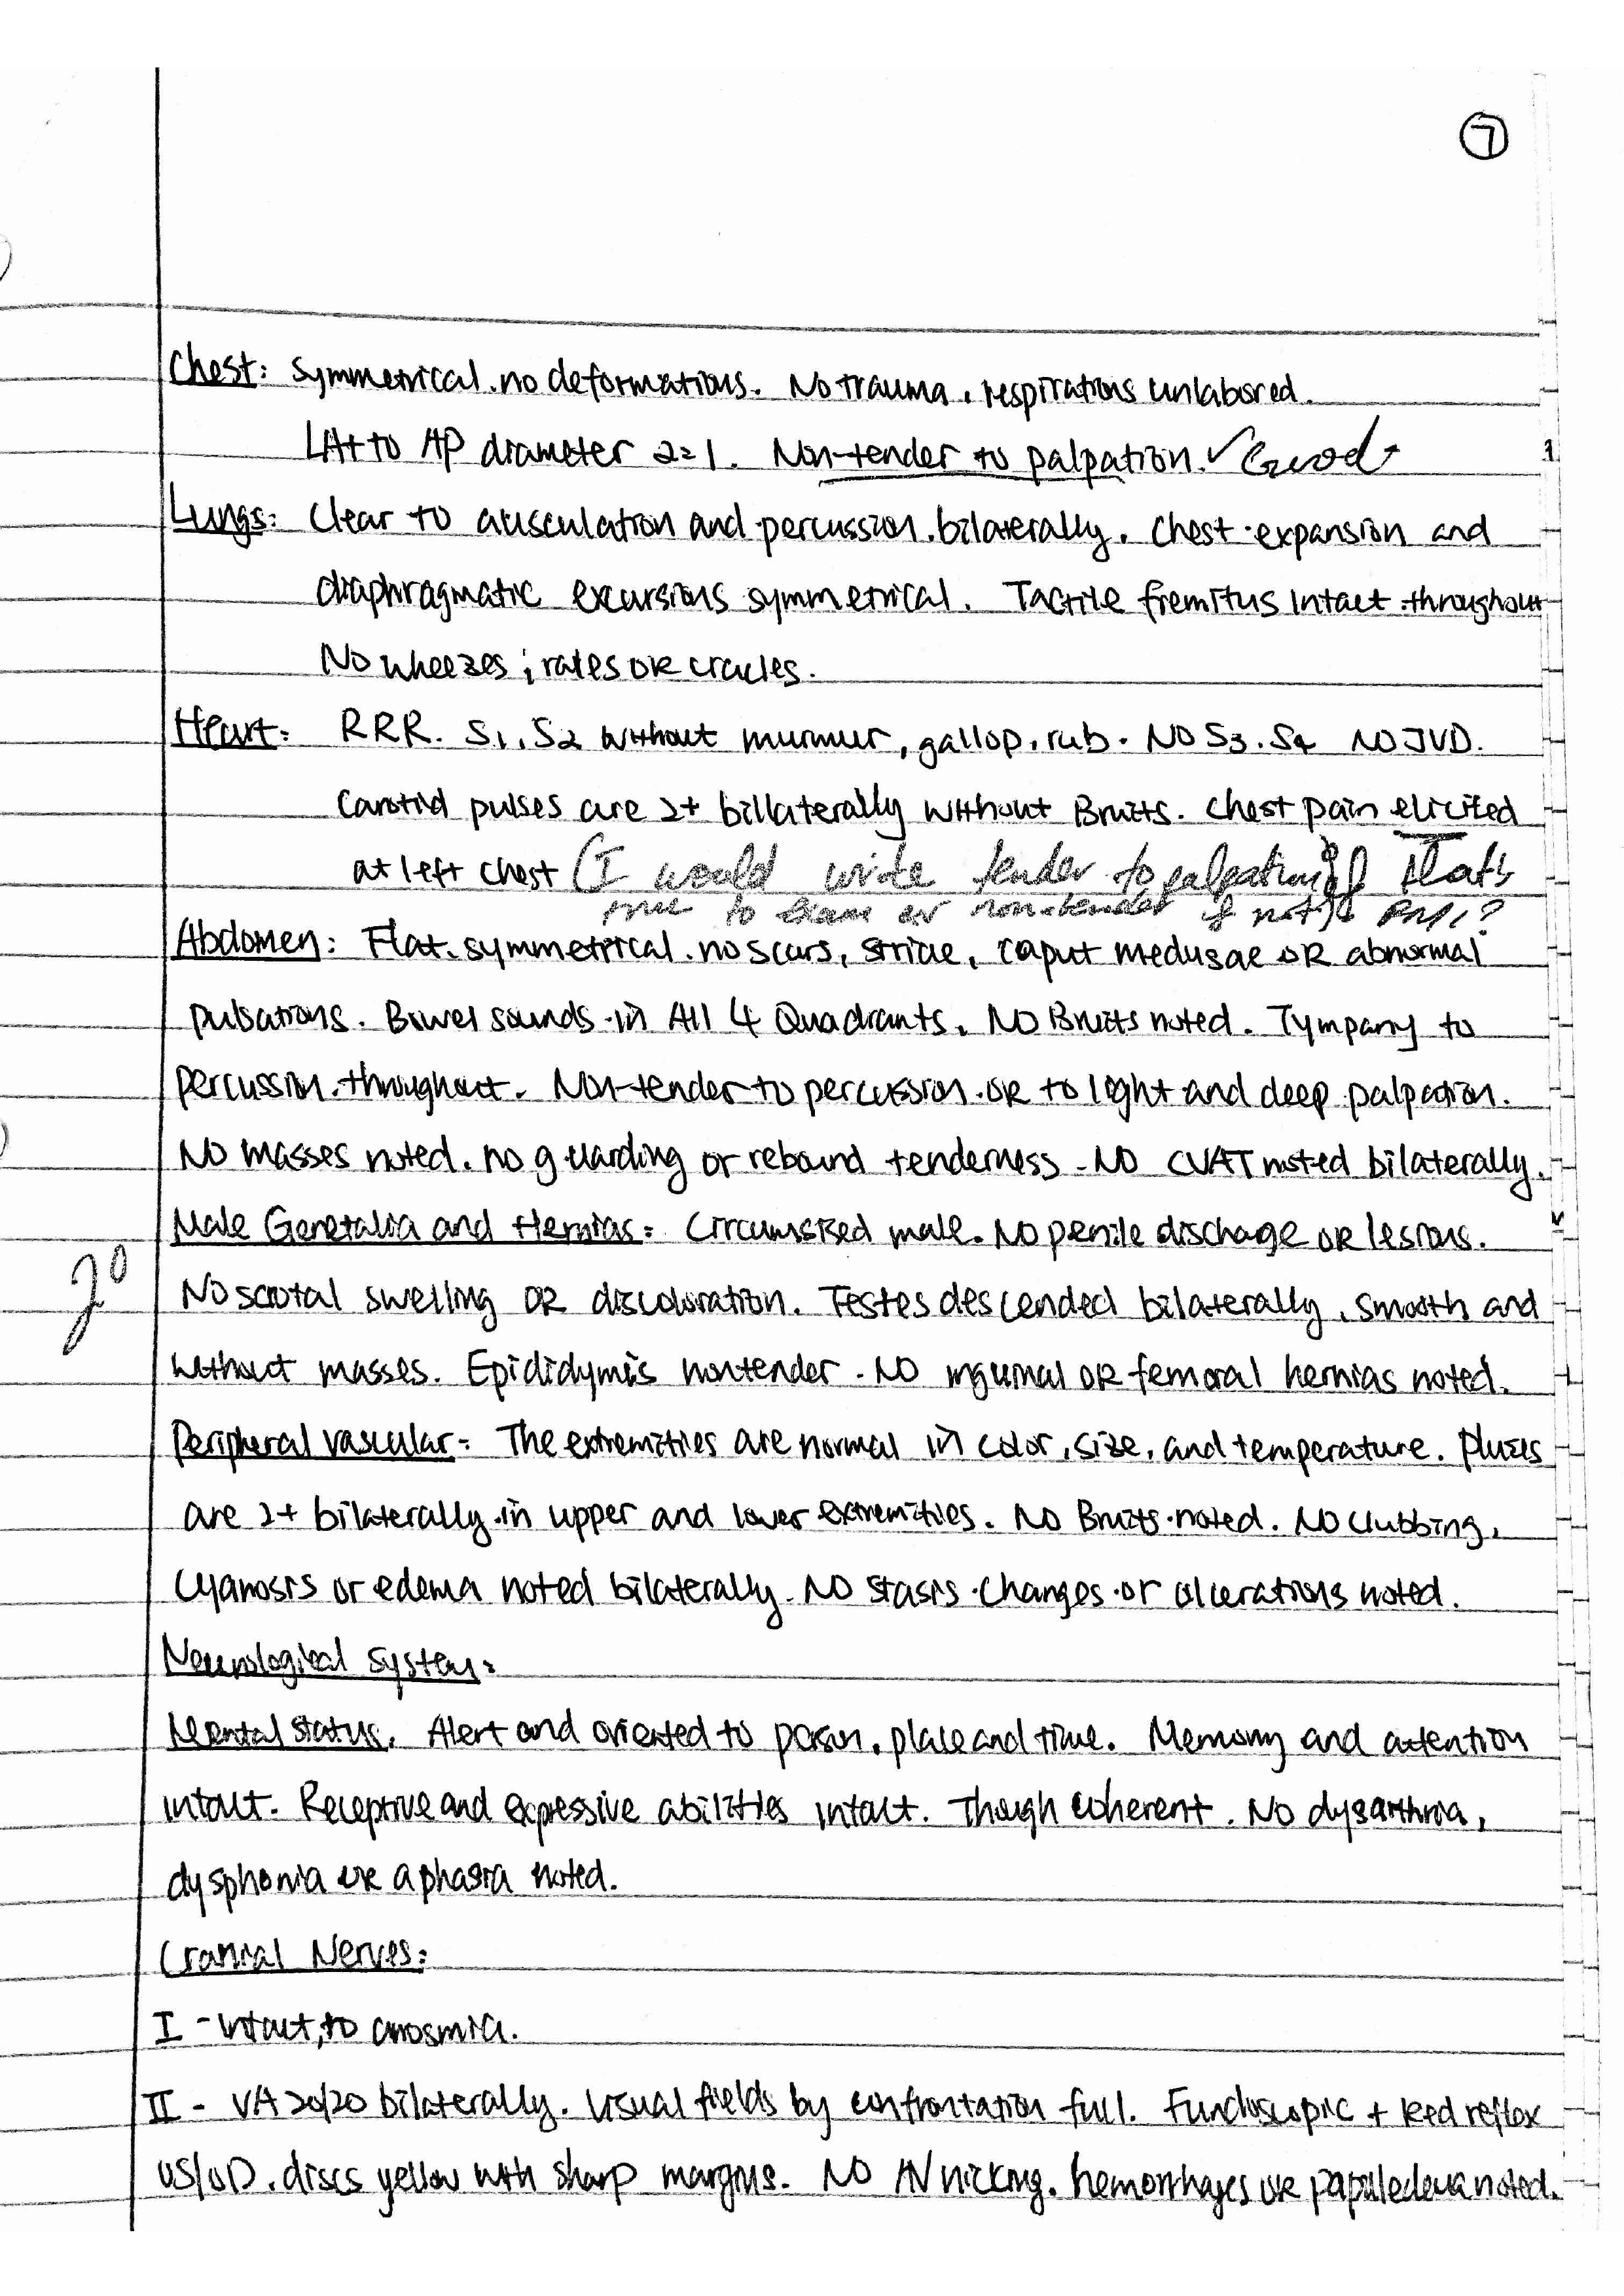 7
Chest: Symmetrical. no deformations. No trauma, respirations unlabored.
LAt to AP diameter 2=1. Non-tender to palpation. ✓ Good
Lungs: Clear to ausculation and percussion bilaterally. Chest expansion and
diaphragmatic excursions symmetrical. Tactile fremitus intact throughout
No wheezes, rales OR cracles.
Heart: RRR. S1, S2 without murmur, gallop, rub. NO S3. S4 NO JVD.
Carotid pulses are 2+ billaterally without Bruits. Chest pain elicited
at left chest (I would write tender to palpation if that's
true to exam or non-tender if not) PMI?
Abdomen: Flat. symmetrical. no scars, striae, caput medusae OR abnormal
pulsations. Bowel sounds in All 4 Quadrants. NO Bruits noted. Tympany to
percussion throughout. Non-tender to percussion OR to light and deep palpation.
NO masses noted. no guarding or rebound tenderness - NO CVAT noted bilaterally.
Male Genetalia and Hernias: Circumsised male. No penile discharge OR lesions.
No scrotal swelling OR discoloration. Testes descended bilaterally, smooth and
without masses. Epididymis nontender. NO inguinal OR femoral hernias noted.
Peripheral vascular: The extremities are normal in color, size, and temperature. Pluses
are 2+ bilaterally in upper and lower extremities. NO Bruits noted. NO clubbing,
cyanosis or edema noted bilaterally. NO stasis changes or ulcerations noted.
Neurological System:
Mental status. Alert and oriented to person, place and time. Memory and attention
intact. Receptive and expressive abilities intact. Though coherent. No dysarthria,
dysphonia OR aphasia noted.
Cranial Nerves:
I - intact, to anosmia.
II - VA 20/20 bilaterally. Visual fields by confrontation full. Fundoscopic + Red reflex
OS/OD. discs yellow with sharp margins. NO AV nicking. hemorrhages OR papiledema noted.